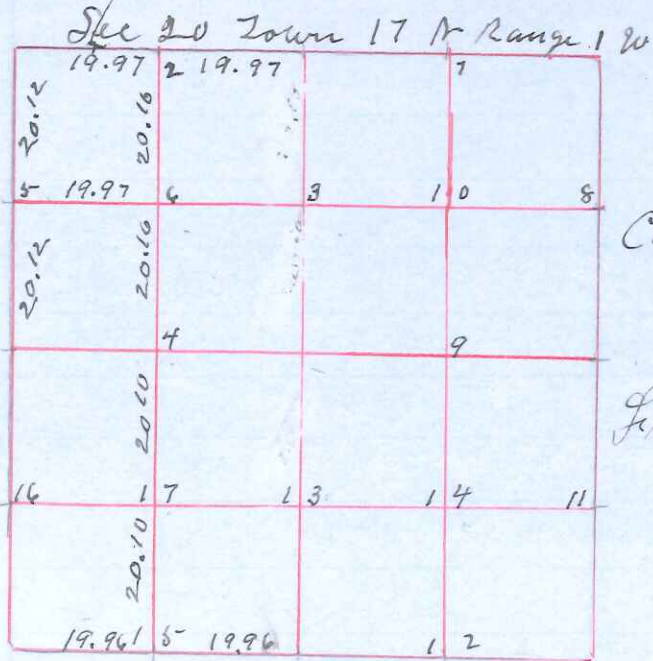 Sec 20 Town 17 N Range 1 W
19.97 2 19.97 7
20.12 20.16
5 19.97 6 3 10 8
20.12 20.16
4 9
20.10
16 17 13 14 11
20.10
19.96 15 19.96 12